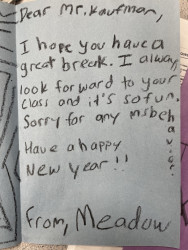 Dear Mr. Kaufman,
I hope you have a
great break. I alway
look forward to your
class and it's so fun.
Sorry for any msbehavior
Have a happy
New year!!
From, Meadow